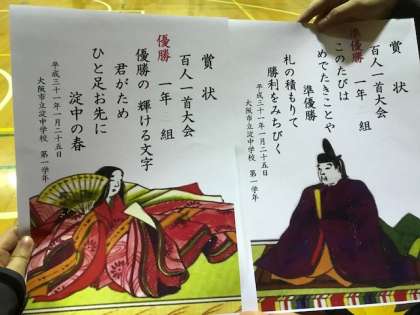 賞状
百人一首大会
優勝 一年 組
優勝の 輝ける文字
君がため
ひと足お先に
淀中の春
平成三十一年一月二十五日
大阪市立淀中学校 第一学年
賞状
百人一首大会
準優勝 一年 組
このたびは
めでたきことや
準優勝
札の積もりて
勝利をみちびく
平成三十一年一月二十五日
大阪市立淀中学校 第一学年